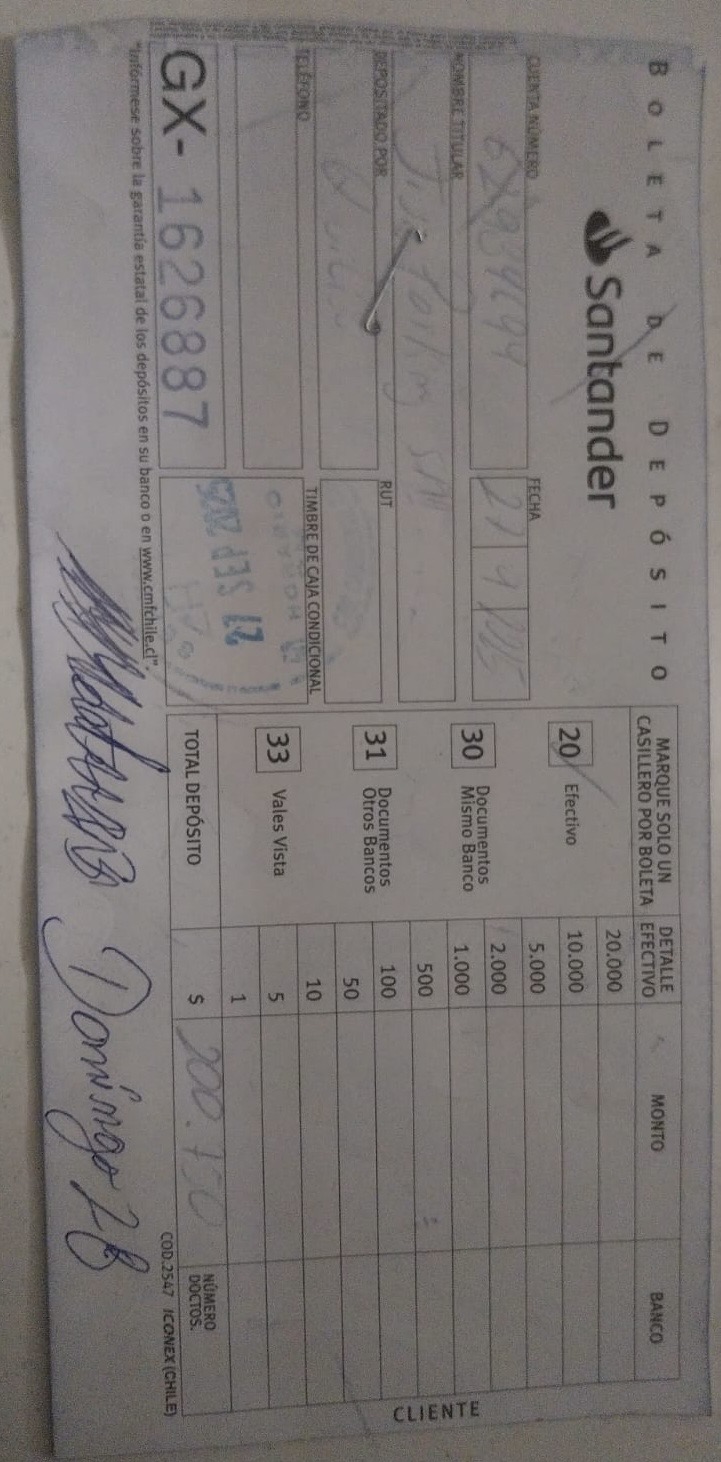 BOLETA DE DEPÓSITO
Santander
CUENTA NÚMERO
FECHA
27
NOMBRE TITULAR
DEPOSITADO POR
RUT
TELÉFONO
TIMBRE DE CAJA CONDICIONAL
27 SEP 2025
GX- 1626887
"Infórmese sobre la garantía estatal de los depósitos en su banco o en www.cmfchile.cl".
MARQUE SOLO UN
CASILLERO POR BOLETA
20 Efectivo
30 Documentos
Mismo Banco
31 Documentos
Otros Bancos
33 Vales Vista
TOTAL DEPÓSITO
DETALLE
EFECTIVO
MONTO
BANCO
20.000
10.000
5.000
2.000
1.000
500
100
50
10
5
1
$ 200.750
NÚMERO
DOCTOS.
COD.2547 ICONEX (CHILE)
CLIENTE
Domingo 28